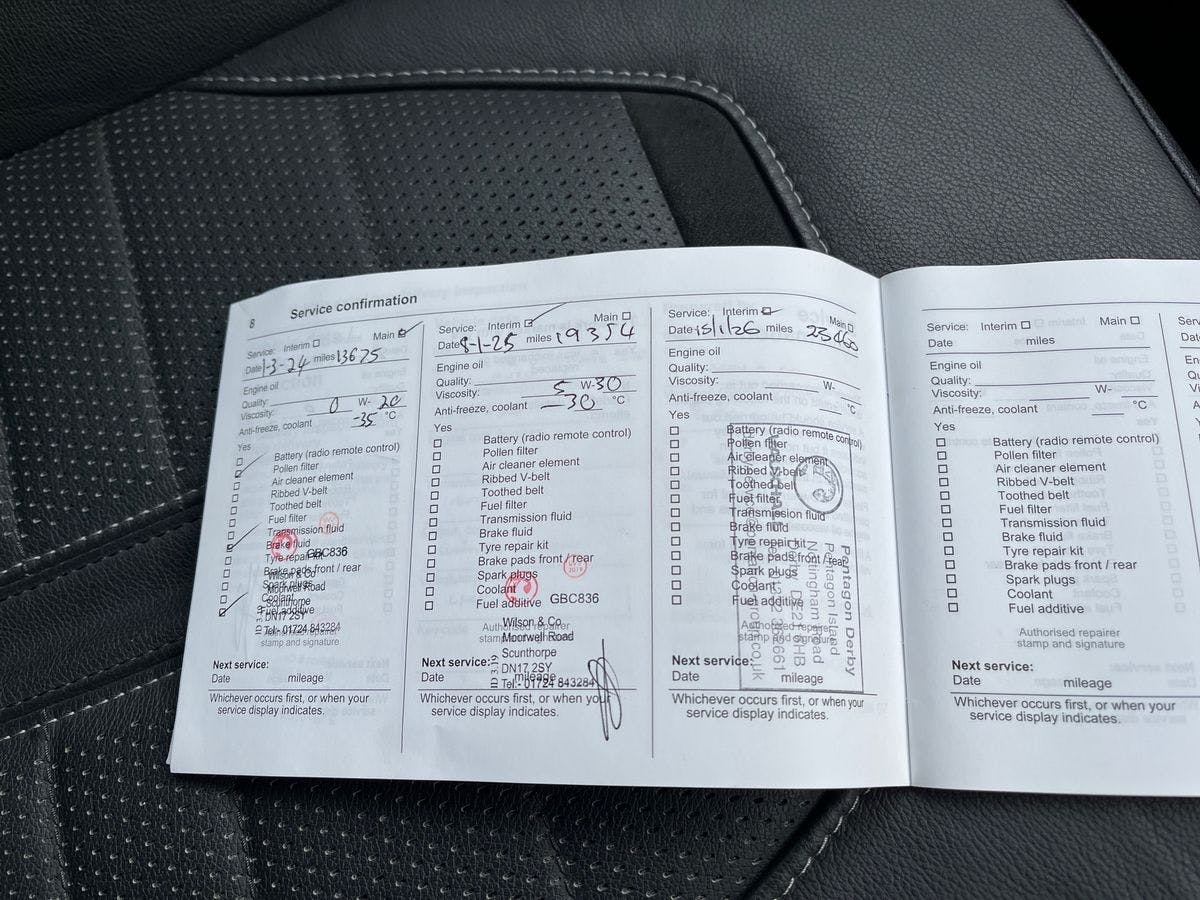 8 Service confirmation
Service: Interim ☐ Main ☑
Date 1-3-24 miles 13675
Engine oil
Quality:
Viscosity: 0 W- 20
Anti-freeze, coolant -35 °C
Yes
Battery (radio remote control)
Pollen filter
Air cleaner element
Ribbed V-belt
Toothed belt
Fuel filter
Transmission fluid
Brake fluid
Tyre repair kit
GBC836
Brake pads front / rear
Wilson & Co
Spark plugs
Moorwell Road
Coolant
Scunthorpe
Fuel additive
DN17 2SY
Tel:- 01724 843284
Authorised repairer
stamp and signature
Next service:
Date mileage
Whichever occurs first, or when your
service display indicates.
Service: Interim ☑ Main ☐
Date 8-1-25 miles 19354
Engine oil
Quality:
Viscosity: 5 W-30
Anti-freeze, coolant -30 °C
Yes
Battery (radio remote control)
Pollen filter
Air cleaner element
Ribbed V-belt
Toothed belt
Fuel filter
Transmission fluid
Brake fluid
Tyre repair kit
Brake pads front / rear
Spark plugs
Coolant
Fuel additive GBC836
Authorised repairer
Wilson & Co
stamp and signature
Moorwell Road
Scunthorpe
Next service:
DN17 2SY
Date mileage
Tel:- 01724 843284
ID 3.19
Whichever occurs first, or when your
service display indicates.
Service: Interim ☑ Main ☐
Date 15/1/26 miles
Engine oil
Quality:
Viscosity: W-
Anti-freeze, coolant °C
Yes
Battery (radio remote control)
Pollen filter
Air cleaner element
Ribbed V-belt
Toothed belt
Fuel filter
Transmission fluid
Brake fluid
Tyre repair kit
Brake pads front / rear
Spark plugs
Coolant
Fuel additive
Authorised repairer
stamp and signature
Pentagon Derby
Pentagon Island
Nottingham Road
Next service:
Date mileage
Whichever occurs first, or when your
service display indicates.
Service: Interim ☐ Main ☐
Date miles
Engine oil
Quality:
Viscosity: W-
Anti-freeze, coolant °C
Yes
Battery (radio remote control)
Pollen filter
Air cleaner element
Ribbed V-belt
Toothed belt
Fuel filter
Transmission fluid
Brake fluid
Tyre repair kit
Brake pads front / rear
Spark plugs
Coolant
Fuel additive
Authorised repairer
stamp and signature
Next service:
Date mileage
Whichever occurs first, or when your
service display indicates.